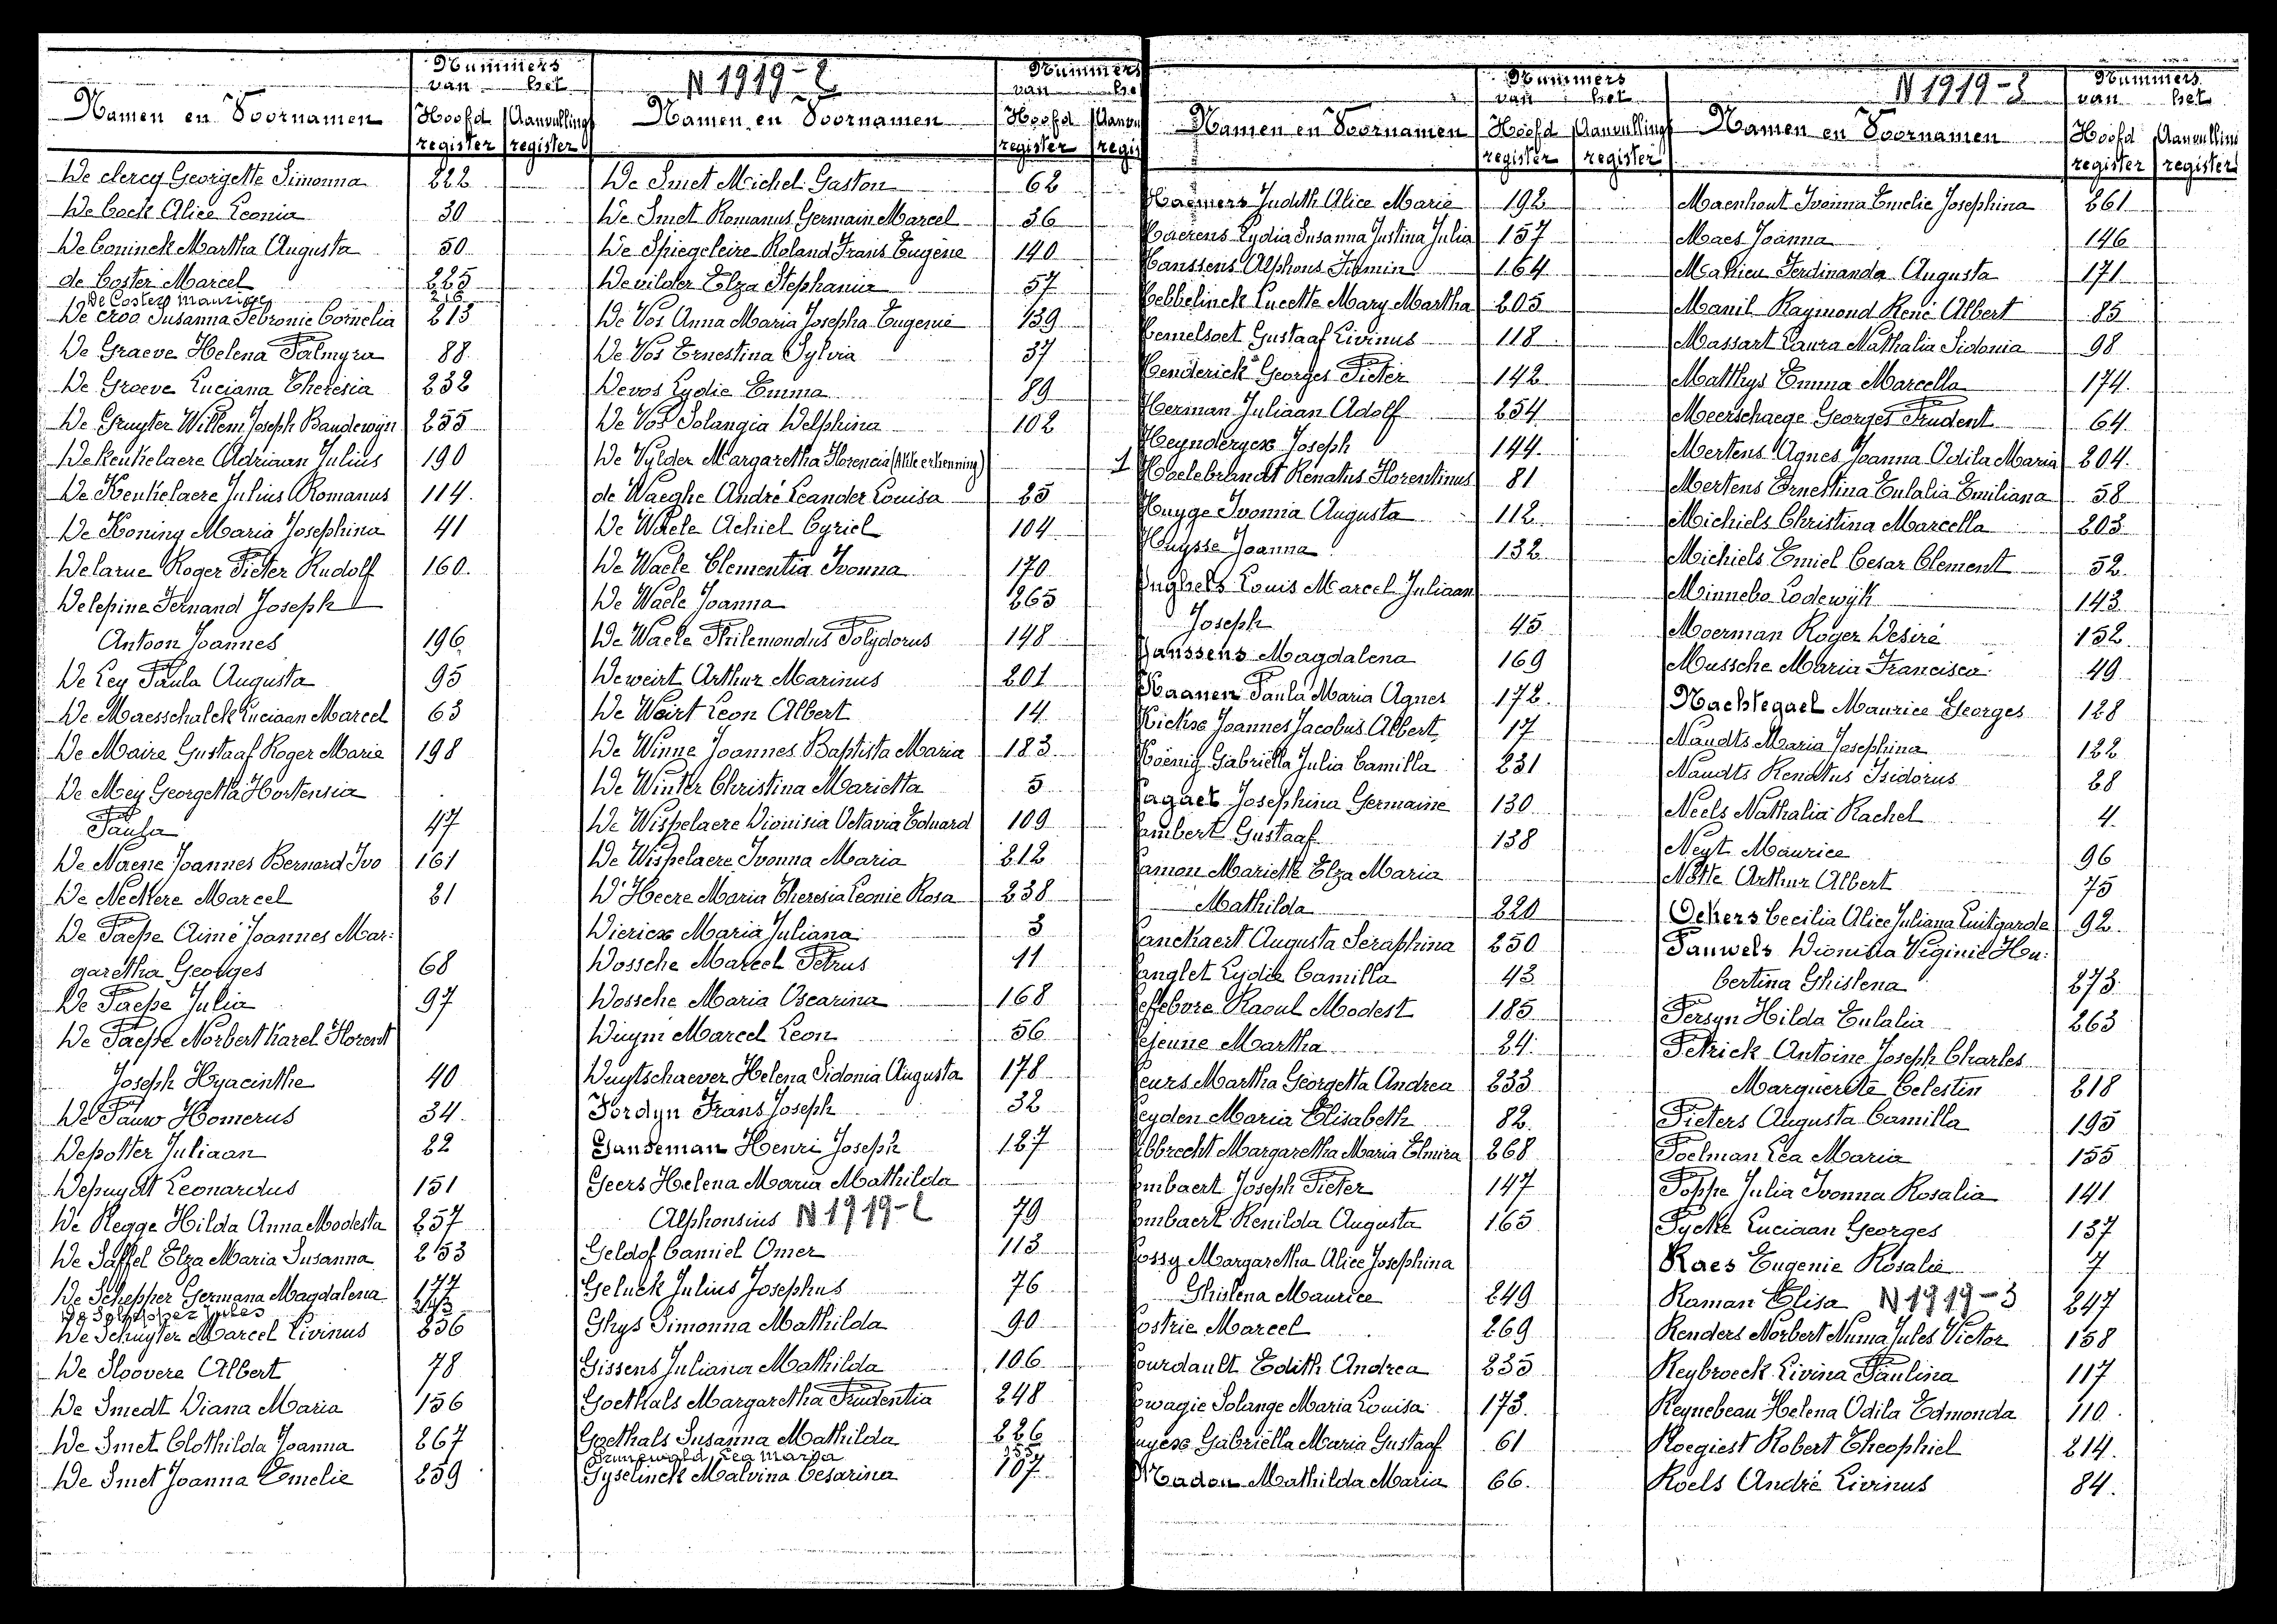 Nummers
van het
N 1919-2
Namen en Voornamen
Hoofd register
Aanvulling register
De clercq Georgette Simonna 222
De Cock Alice Leonia 30
De Coninck Martha Augusta 50
de Coster Marcel 225
De Coster Maurice 216
De Croo Susanna Sebronie Cornelia 213
De Graeve Helena Palmyra 88
De Graeve Luciana Theresia 232
De Gruyter Willem Joseph Baudewijn 255
De Keukelaere Adriaan Julius 190
De Keukelaere Julius Romanus 114
De Koning Maria Josephina 41
Delarue Roger Pieter Rudolf 160
Delepine Fernand Joseph
Antoon Joannes 196
De Ley Paula Augusta 95
De Maesschalck Luciaan Marcel 63
De Maire Gustaaf Roger Marie 198
De Mey Georgetta Hortensia
Paula 47
De Naene Joannes Bernard Ivo 161
De Neckere Marcel 21
De Paepe Aimé Joannes Mar:
garetha Georges 68
De Paepe Julia 97
De Paepe Norbert Karel Florent
Joseph Hyacinthe 40
De Pauw Homerus 34
Depotter Juliaan 22
Depuydt Leonardus 151
De Regge Hilda Anna Modesta 257
De Saffel Elza Maria Susanna 253
De Schepper Germana Magdalena 177
Jules 243
De Schuyter Marcel Livinus 236
De Sloovere Albert 78
De Smedt Diana Maria 156
De Smet Clothilda Joanna 267
De Smet Joanna Emelie 259
Nummers
van he
Namen en Voornamen
Hoofd register
Aanv regis
De Smet Michel Gaston 62
De Smet Romanus Germain Marcel 36
De Spiegeleire Roland Frans Eugène 140
Devilder Elza Stephania 57
De Vos Anna Maria Josepha Eugenie 139
De Vos Ernestina Sylvia 37
Devos Lydie Emma 89
De Vos Solangia Delphina 102
De Vylder Margaretha Florencia (Akte erkenning) 1
de Waeghe André Leander Louisa 25
De Waele Achiel Cyriel 104
De Waele Clementia Ivonna 170
De Waele Joanna 265
De Waele Philemondus Polydorus 148
Deweirt Arthur Marinus 201
De Weirt Leon Albert 14
De Winne Joannes Baptista Maria 183
De Winter Christina Marietta 5
De Wispelaere Dionisia Octavia Eduard 109
De Wispelaere Ivonna Maria 212
D'Heere Maria Theresia Leonie Rosa 238
Diericx Maria Juliana 3
Dossche Marcel Petrus 11
Dossche Maria Oscarina 168
Duym Marcel Leon 56
Duytschaever Helena Sidonia Augusta 178
Fordyn Frans Joseph 32
Gandeman Henri Joseph 127
Geers Helena Maria Mathilda
Alphonsius N 1919-2 79
Geldof Camiel Omer 113
Geluck Julius Josephus 76
Ghys Simonna Mathilda 90
Gissens Juliana Mathilda 106
Goethals Margaretha Prudentia 248
Goethals Susanna Mathilda 226
Grunewald Lea Maria 155
Gyselinck Malvina Cesarina 107
Nummers
van het
Namen en Voornamen
Hoofd register
Aanvulling register
Haemers Judith Alice Marie 192
Haerens Lydia Susanna Justina Julia 157
Hanssens Alphons Firmin 164
Hebbelinck Lucette Mary Martha 205
Hemelsoet Gustaaf Livinus 118
Henderick Georges Pieter 142
Herman Juliaan Adolf 254
Heynderycx Joseph 144
Hoelebrandt Renatus Florentinus 81
Huyge Ivonna Augusta 112
Huysse Joanna 132
Inghels Louis Marcel Juliaan
Joseph 45
Janssens Magdalena 169
Kaanen Paula Maria Agnes 172
Kickx Joannes Jacobus Albert 17
Koenig Gabriëlla Julia Camilla 231
Lagaet Josephina Germaine 130
Lambert Gustaaf 138
Lamon Mariette Elza Maria
Mathilda 220
Lanckaert Augusta Seraphina 250
Langlet Lydie Camilla 43
Lefebvre Raoul Modest 185
Lejeune Martha 24
Leurs Martha Georgetta Andrea 233
Leyden Maria Elisabeth 82
Libbrecht Margaretha Maria Elmira 268
Lombaert Joseph Pieter 147
Lombaert Renilda Augusta 165
Lossy Margaretha Alice Josephina
Ghislena Maurice 249
Lostrie Marcel 269
Lourdault Edith Andrea 235
Lowagie Solange Maria Louisa 173
Luyckx Gabriëlla Maria Gustaaf 61
Madou Mathilda Maria 66
N 1919-3
Nummers
van het
Namen en Voornamen
Hoofd register
Aanvulling register
Maenhout Ivonna Emelie Josephina 261
Maes Joanna 146
Mahieu Ferdinanda Augusta 171
Manil Raymond René Albert 85
Massart Laura Nathalia Sidonia 98
Matthys Emma Marcella 174
Meerschaege Georges Prudent 64
Mertens Agnes Joanna Odila Maria 204
Mertens Ernestina Eulalia Emiliana 58
Michiels Christina Marcella 203
Michiels Emiel Cesar Clement 52
Minnebo Lodewijk 143
Moerman Roger Desiré 152
Mussche Maria Francisca 49
Nachtegael Maurice Georges 128
Naudts Maria Josephina 122
Naudts Renatus Isidorus 28
Neels Nathalia Rachel 4
Neyt Maurice 96
Notte Arthur Albert 75
Ockers Cecilia Alice Juliana Luitgarde 92
Pauwels Dionisia Virginie Hu:
bertina Ghislena 273
Persyn Hilda Eulalia 263
Petrick Antoine Joseph Charles
Marguerite Celestin 218
Pieters Augusta Camilla 195
Poelman Lea Maria 155
Poppe Julia Ivonna Rosalia 141
Pycke Luciaan Georges 137
Raes Eugenie Rosalie 7
Raman Elisa N 1919-3 247
Renders Norbert Numa Jules Victor 158
Reybroeck Livina Paulina 117
Reynebeau Helena Odila Edmonda 110
Roegiest Robert Theophiel 214
Roels André Livinus 84